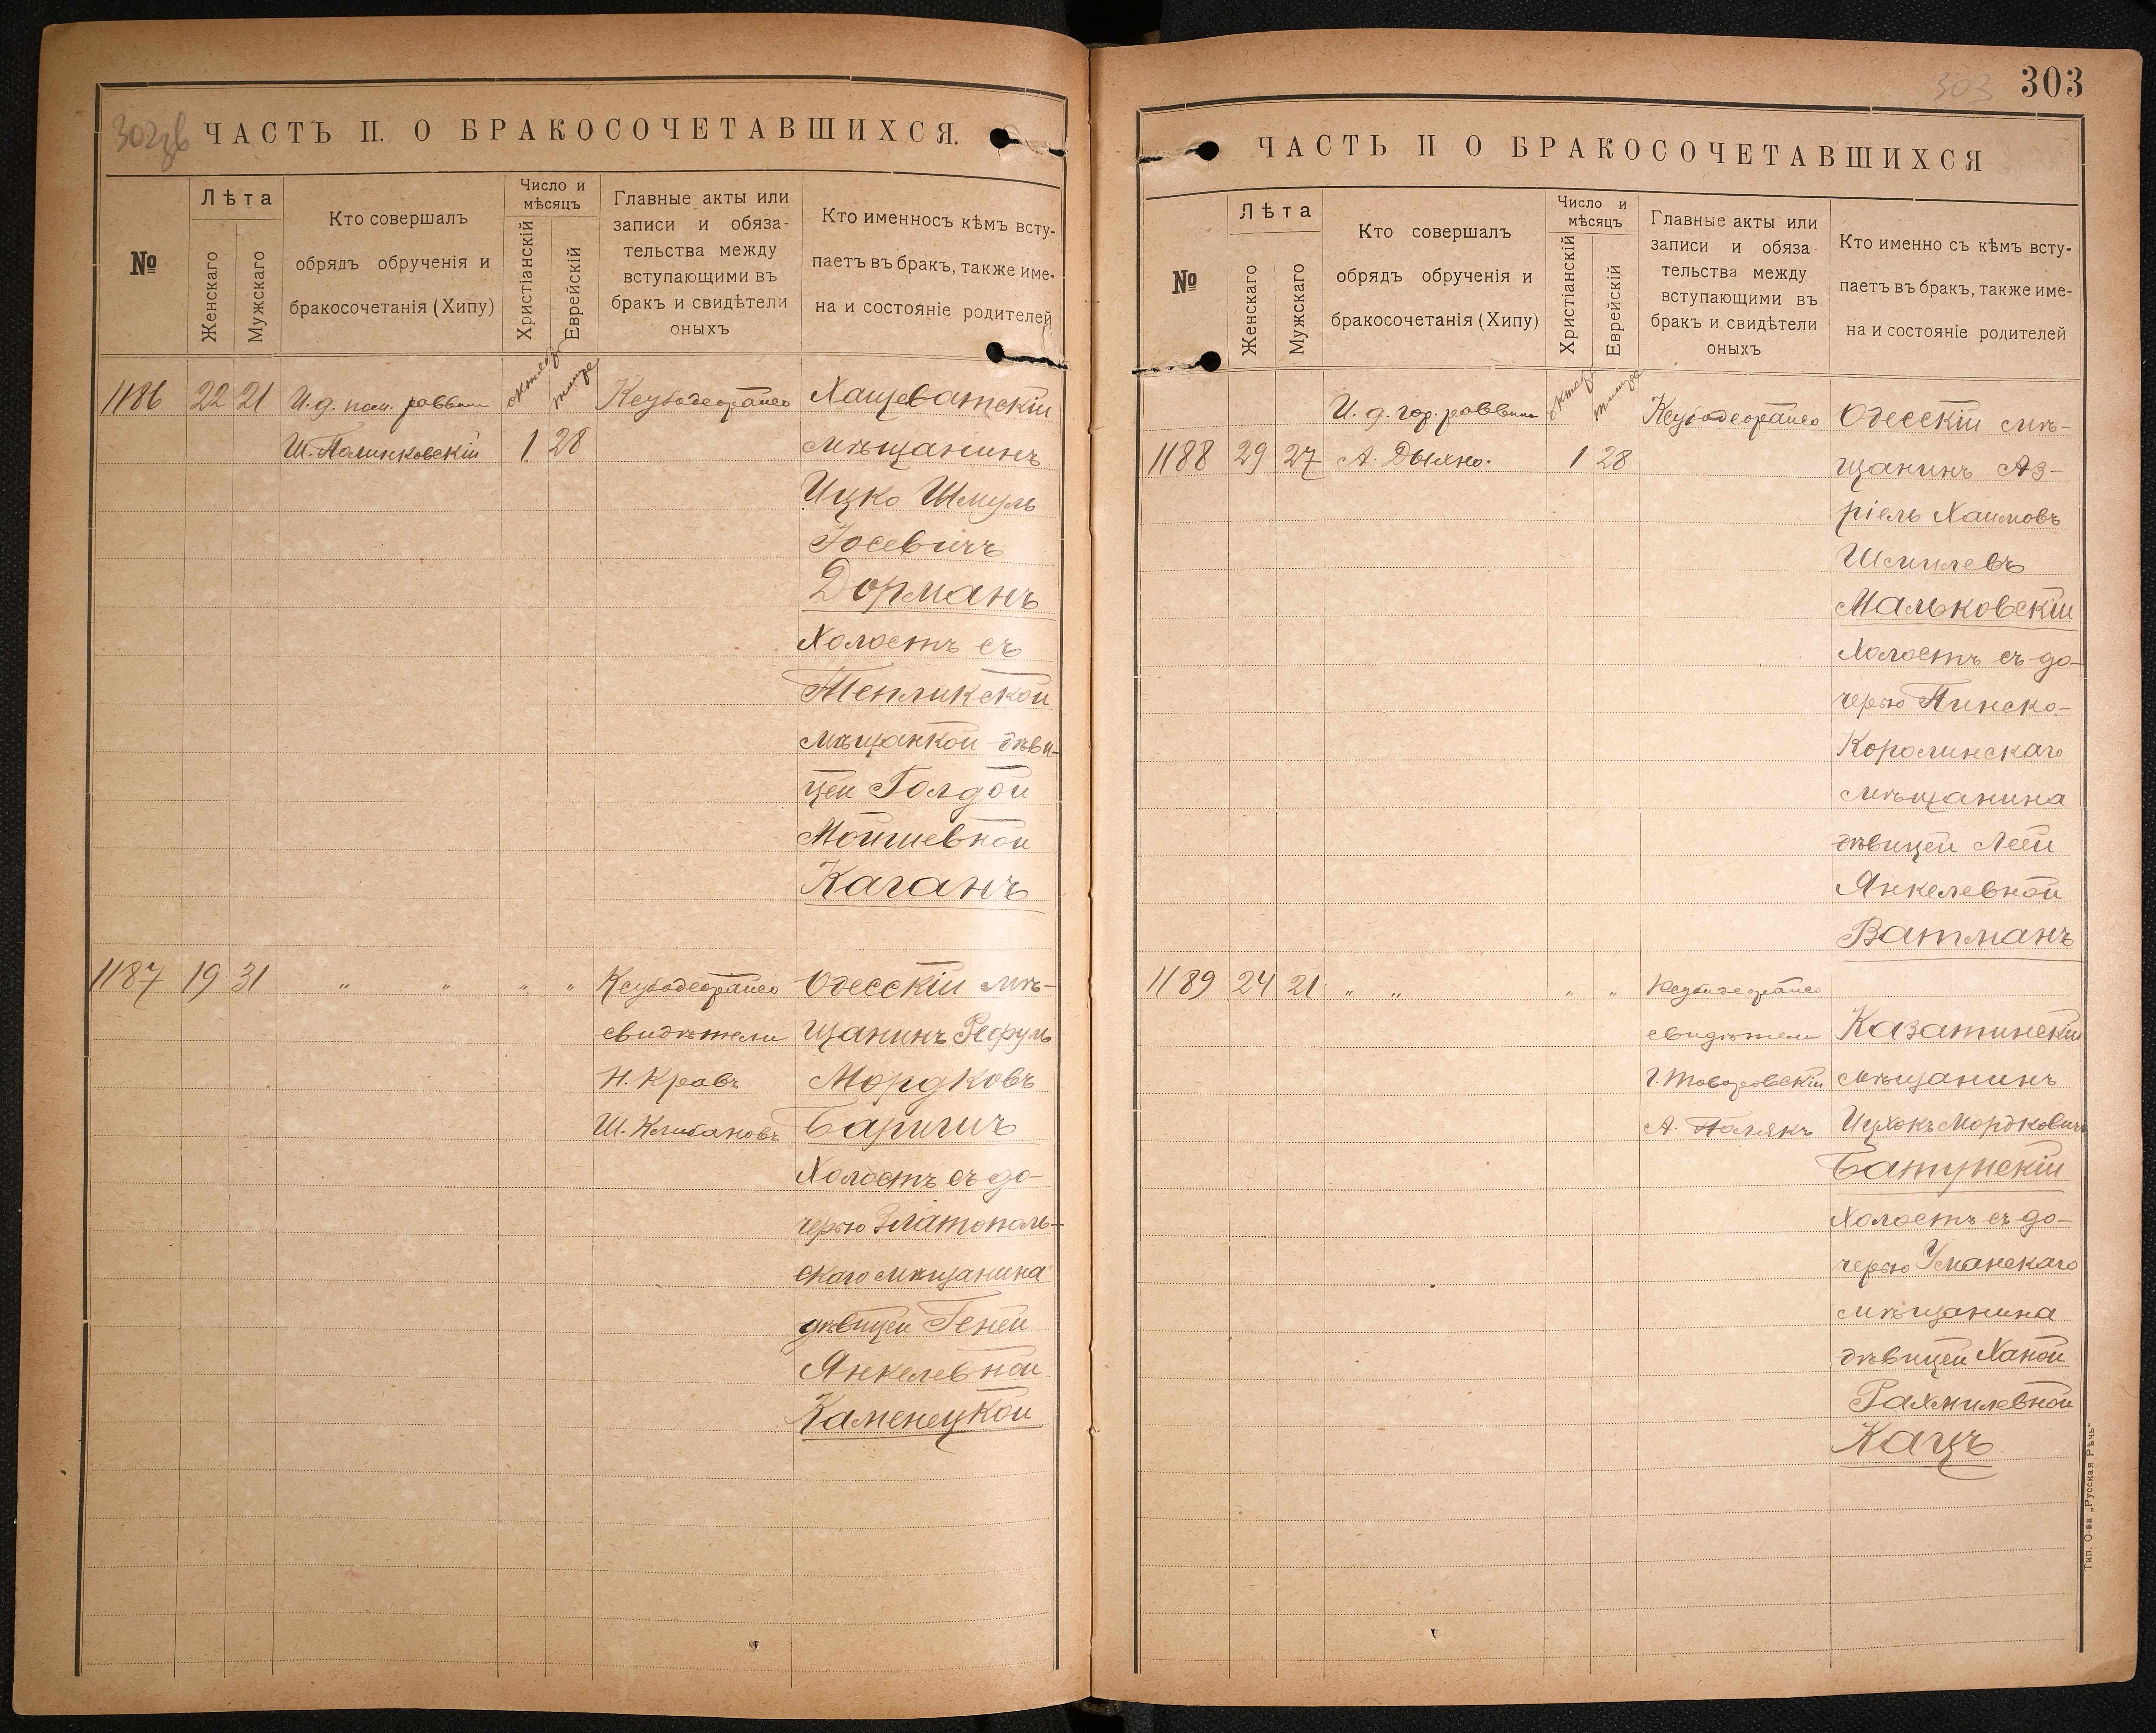 302зв
ЧАСТЬ II. О БРАКОСОЧЕТАВШИХСЯ.
№
Лѣта
Женскаго
Мужскаго
Кто совершалъ
обрядъ обрученія и
бракосочетанія (Хипу)
Число и
мѣсяцъ
Христіанскій
Еврейскій
Главные акты или
записи и обяза-
тельства между
вступающими въ
бракъ и свидѣтели
оныхъ
Кто именносъ кѣмъ всту-
паетъ въ бракъ, также име-
на и состояніе родителей
1186 22 21 И.д. пом. раввина октября тишре Хащеватскій
Ш. 1 28 мѣщанинъ
Ицко Шмуль
Іосевичъ
Дорманъ
Холостъ съ
Тепликской
мѣщанкой дѣви-
цей Голдой
Мойшевной
Каганъ
1187 19 31 " " " " Одесскій мѣ-
свидѣтели щанинъ Рефуль
Н. Кравъ Мордковъ
Ш. Клибановъ Баришъ
Холостъ съ до-
черью Златополь-
скаго мѣщанина
дѣвицей Геней
Янкелевной
Каменецкой
303 303
ЧАСТЬ II О БРАКОСОЧЕТАВШИХСЯ
№
Лѣта
Женскаго
Мужскаго
Кто совершалъ
обрядъ обрученія и
бракосочетанія (Хипу)
Число и
мѣсяцъ
Христіанскій
Еврейскій
Главные акты или
записи и обяза
тельства между
вступающими въ
бракъ и свидѣтели
оныхъ
Кто именно съ кѣмъ всту-
паетъ въ бракъ, также име-
на и состояніе родителей
И. д. гор. раввина октября тишре Одесскій мѣ-
1188 29 27 А. Дыхно. 1 28 щанинъ Аз-
ріель Хаимовъ
Шмилевъ
Мальковскій
Холостъ съ до-
черью Пинско-
Королинскаго
мѣщанина
дѣвицей Леей
Янкелевной
Ватманъ
1189 24 21 " " " "
свидѣтели Казатинскій
мѣщанинъ
А. Полякъ Ицхокъ Мордковичъ
Батунскій
Холостъ съ до-
черью Уманскаго
мѣщанина
дѣвицей Ханой
Рахмилевной
Кацъ
Тип. О-ва „Русская Рѣчь"